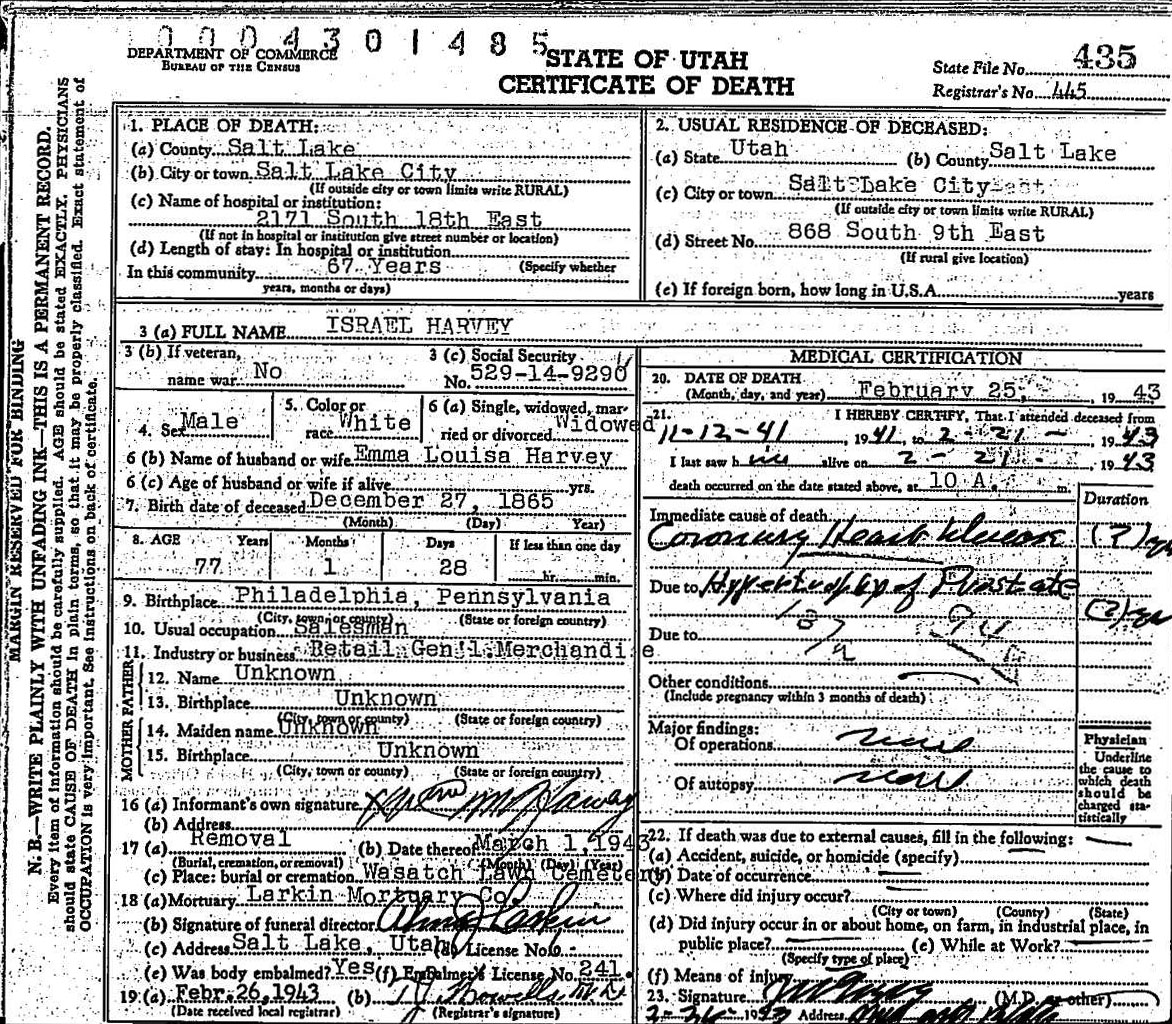 0004301485
DEPARTMENT OF COMMERCE
BUREAU OF THE CENSUS
STATE OF UTAH
CERTIFICATE OF DEATH
State File No. 435
Registrar's No. 445
MARGIN RESERVED FOR BINDING
N. B.—WRITE PLAINLY WITH UNFADING INK—THIS IS A PERMANENT RECORD.
Every item of information should be carefully supplied. AGE should be stated EXACTLY. PHYSICIANS
should state CAUSE OF DEATH in plain terms, so that it may be properly classified. Exact statement of
OCCUPATION is very important. See instructions on back of certificate.
1. PLACE OF DEATH:
(a) County Salt Lake
(b) City or town Salt Lake City
(If outside city or town limits write RURAL)
(c) Name of hospital or institution:
2171 South 18th East
(If not in hospital or institution give street number or location)
(d) Length of stay: In hospital or institution
In this community 67 Years (Specify whether
years, months or days)
2. USUAL RESIDENCE OF DECEASED:
(a) State Utah (b) County Salt Lake
(c) City or town Salt Lake City
(If outside city or town limits write RURAL)
(d) Street No. 868 South 9th East
(If rural give location)
(e) If foreign born, how long in U.S.A. years
3 (a) FULL NAME ISRAEL HARVEY
3 (b) If veteran,
name war No
3 (c) Social Security
No. 529-14-9290
4. Sex Male
5. Color or
race White
6 (a) Single, widowed, mar-
ried or divorced Widowed
6 (b) Name of husband or wife Emma Louisa Harvey
6 (c) Age of husband or wife if alive yrs.
7. Birth date of deceased December 27, 1865
(Month) (Day) (Year)
8. AGE Years Months Days If less than one day
77 1 28 hr. min.
9. Birthplace Philadelphia, Pennsylvania
(City, town or county) (State or foreign country)
10. Usual occupation Salesman
11. Industry or business Retail Gen'l Merchandise
FATHER
12. Name Unknown
13. Birthplace Unknown
(City, town or county) (State or foreign country)
MOTHER
14. Maiden name Unknown
15. Birthplace Unknown
(City, town or county) (State or foreign country)
16 (a) Informant's own signature
(b) Address
17 (a) Removal (b) Date thereof March 1, 1943
(Burial, cremation, or removal) (Month) (Day) (Year)
(c) Place: burial or cremation Wasatch Lawn Cemetery
18 (a) Mortuary Larkin Mortuary Co
(b) Signature of funeral director Alma Larkin
(c) Address Salt Lake, Utah (d) License No. 6
(e) Was body embalmed? Yes (f) Embalmer's License No. 241.
19 (a) Febr. 26, 1943 (b)
(Date received local registrar) (Registrar's signature)
MEDICAL CERTIFICATION
20. DATE OF DEATH
(Month, day, and year) February 25, 1943
21. I HEREBY CERTIFY, That I attended deceased from
11-12-41 1941, to 2-21- 1943
I last saw him alive on 2-21- 1943
death occurred on the date stated above, at 10 A. m.
Duration
Immediate cause of death
Coronary Heart disease (?) yr
Due to Hypertrophy of Prostate
(?) yr
Due to
Other conditions
(Include pregnancy within 3 months of death)
Major findings:
Of operations none
Of autopsy none
Physician
Underline
the cause to
which death
should be
charged sta-
tistically
22. If death was due to external causes, fill in the following:
(a) Accident, suicide, or homicide (specify)
(b) Date of occurrence
(c) Where did injury occur?
(City or town) (County) (State)
(d) Did injury occur in or about home, on farm, in industrial place, in
public place? (e) While at Work?
(Specify type of place)
(f) Means of injury
23. Signature (M.D. or other)
2-26-1943 Address